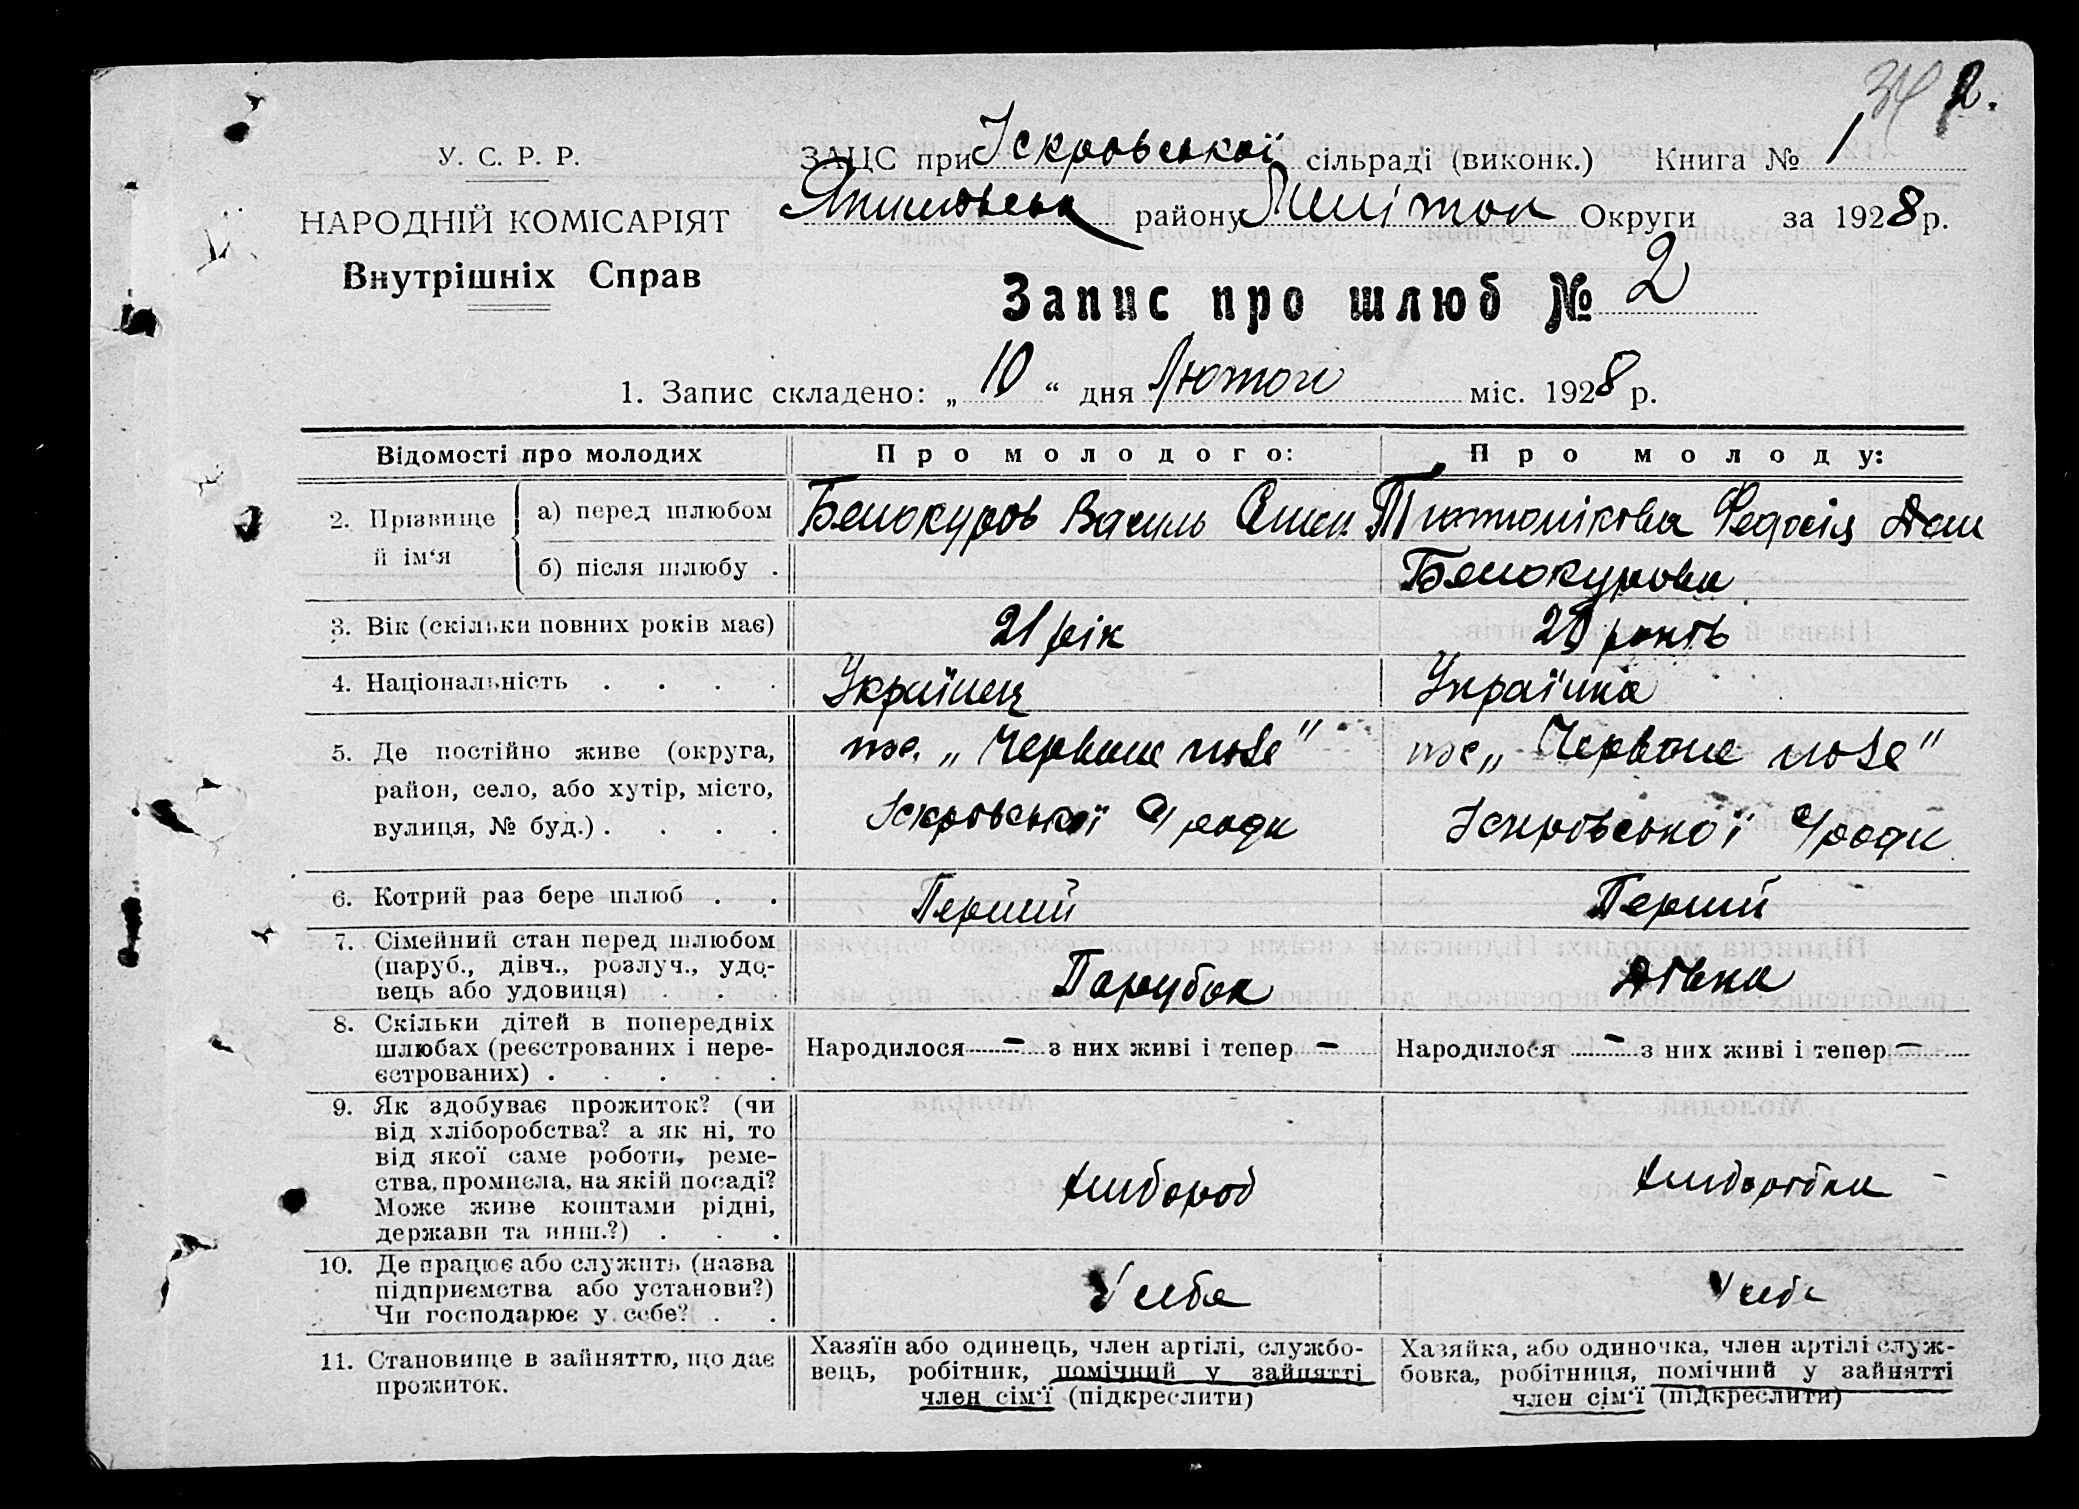 34 2.
У. С. Р. Р.
НАРОДНІЙ КОМІСАРІЯТ
Внутрішніх Справ
ЗАЦС при Іскровської сільраді (виконк.) Книга № 1
району Округи за 1928 р.
Запис про шлюб № 2
1. Запис складено: „ 10 “ дня Лютого міс. 1928 р.
Відомості про молодих
Про молодого:
Про молоду:
2. Прізвище й ім‘я
а) перед шлюбом
Белокуров Василь
Федосія
б) після шлюбу .
Белокурова
3. Вік (скільки повних років має)
21 рік
20 років
4. Національність . . . .
Українец
Українка
5. Де постійно живе (округа,
район, село, або хутір, місто,
вулиця, № буд.) . . . .
„ Червоне поле "
Іскровської С/ради
„ Червоне поле "
Іскровської С/ради
6. Котрий раз бере шлюб . .
Перший
Перший
7. Сімейний стан перед шлюбом
(паруб., дівч., розлуч., удо-
вець або удовиця) . . .
Парубок
Дівка
8. Скільки дітей в попередніх
шлюбах (реєстрованих і нере-
єстрованих) . . . . .
Народилося - з них живі і тепер -
Народилося - з них живі і тепер -
9. Як здобуває прожиток? (чи
від хліборобства? а як ні, то
від якої саме роботи, реме-
ства, промисла, на якій посаді?
Може живе коштами рідні,
держави та инш.?) . . .
хлибороб
хлиборобка
10. Де працює або служить (назва
підприємства або установи?)
Чи господарює у себе? . .
У себе
У себе
11. Становище в зайняттю, що дає
прожиток.
Хазяїн або одинець, член артілі, службо-
вець, робітник, помічний у зайнятті
член сім‘ї (підкреслити)
Хазяйка, або одиночка, член артілі служ-
бовка, робітниця, помічний у зайнятті
член сім‘ї (підкреслити)